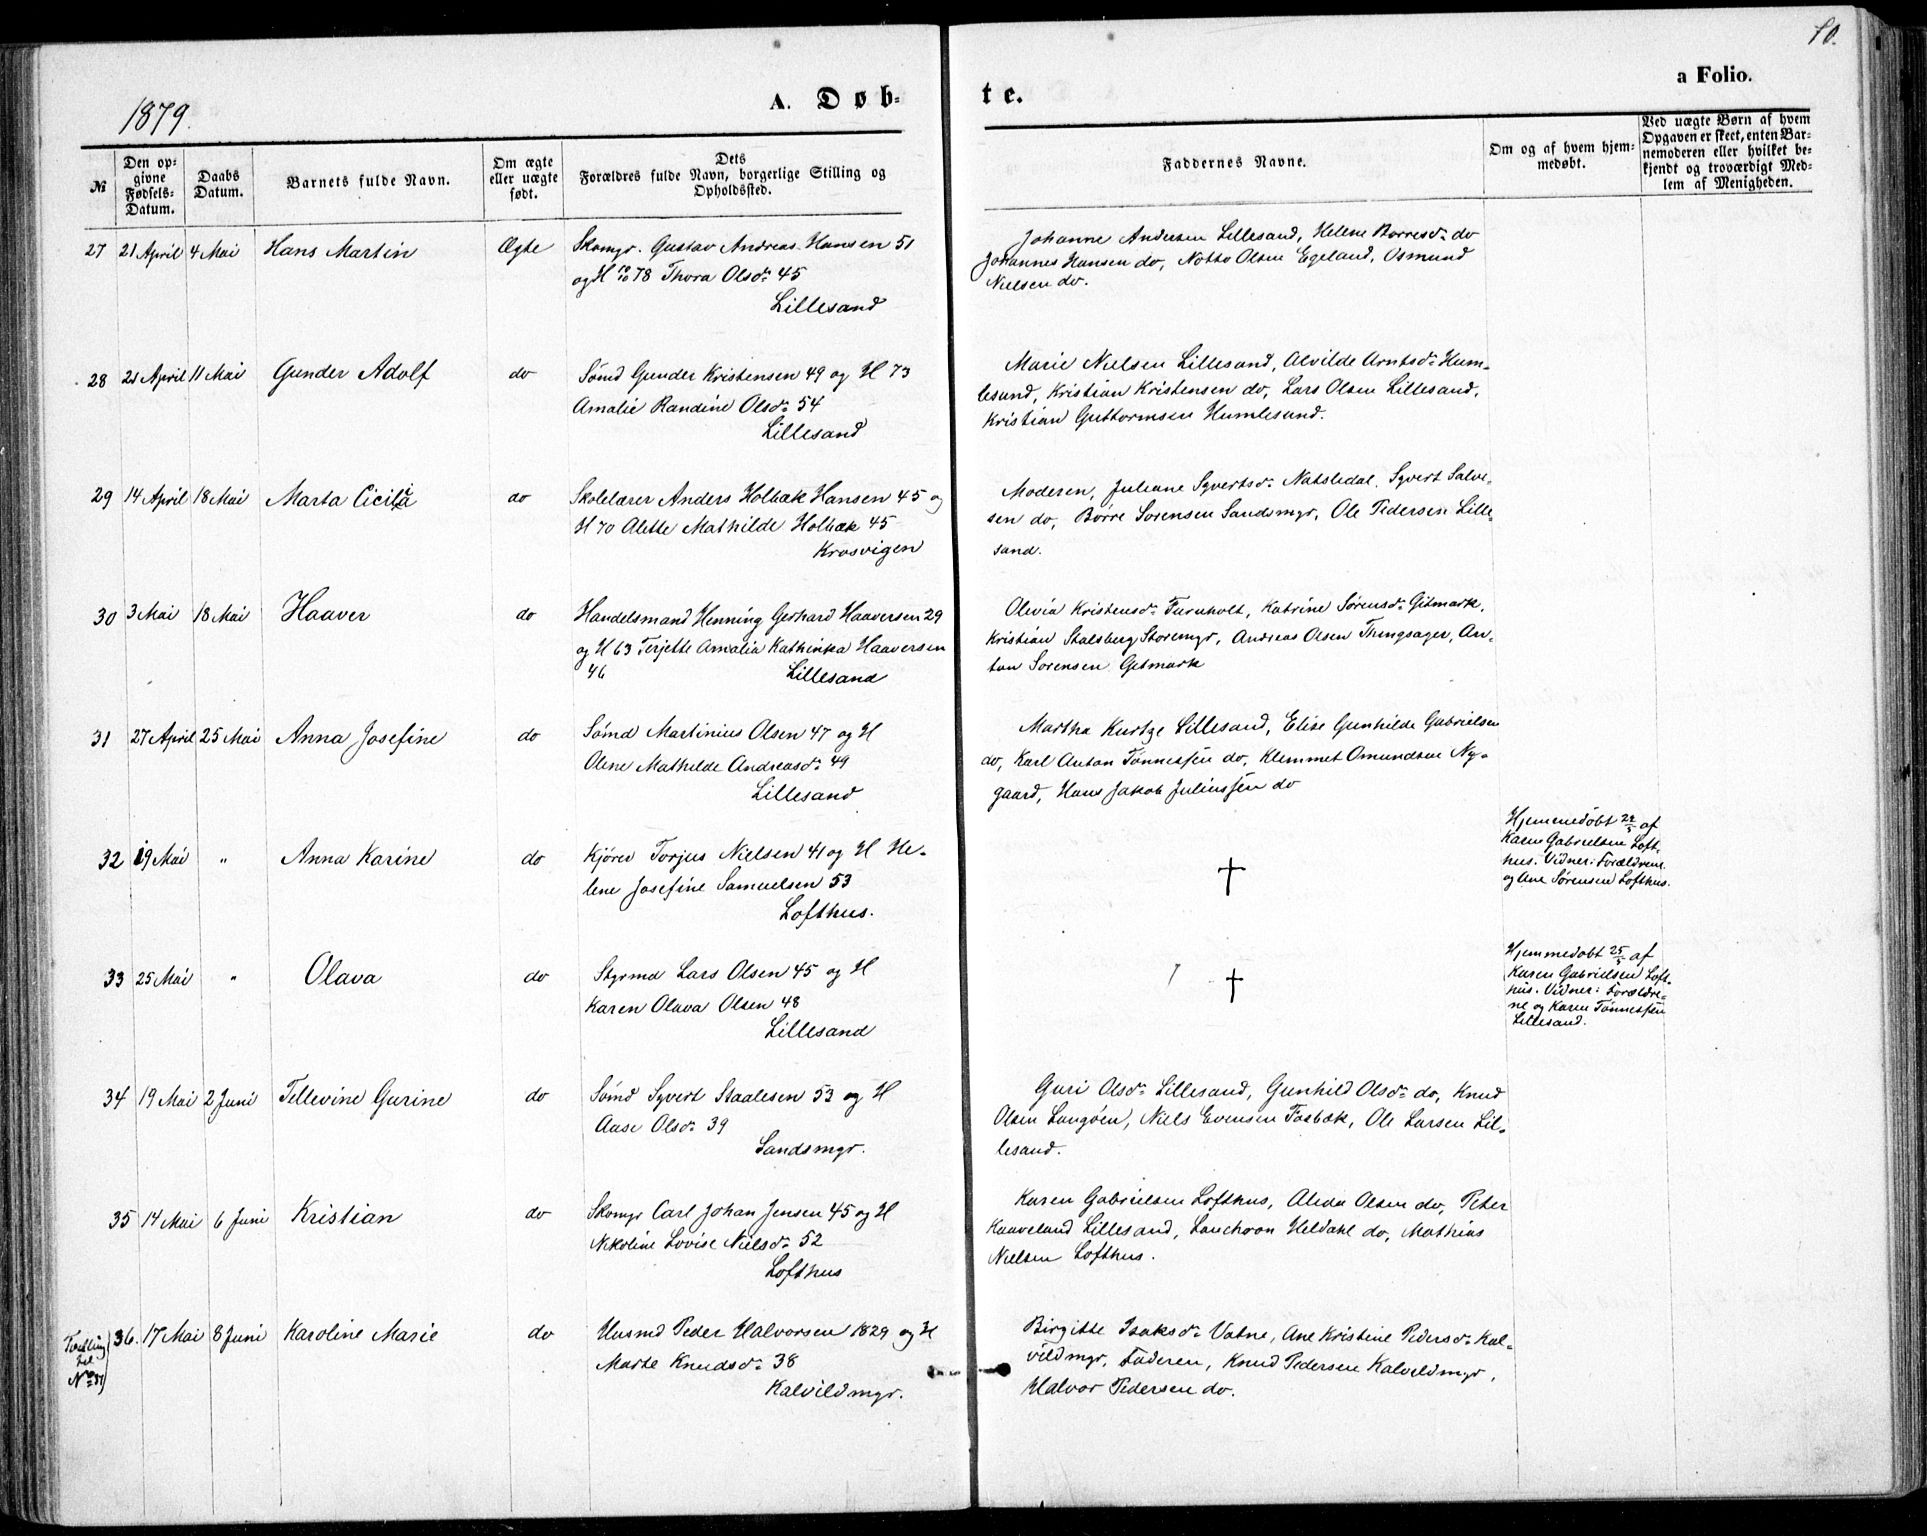 10.
a Folio.
A. Døb-
te.
1879.
№
Den op-
givne
Fødsels-
Datum.
Daabs
Datum.
Barnets fulde Navn.
Om ægte
eller uægte
født.
Dets
Forældres fulde Navn, borgerlige Stilling og
Opholdssted.
Faddernes Navne.
Om og af hvem hjem-
medøbt.
Ved uægte Børn af hvem
Opgaven er skeet, enten Bar-
nemoderen eller hvilket be-
kjendt og troværdigt Med-
lem af Menigheden.
27 21 April 4 Mai Hans Martin Ægte Skomgr. Gustav Andreas Hansen 51
og H 78 Thora Olsdr 45
Lillesand
Johanne Andersen Lillesand, Helene Børresdr do
Johannes Hansen do, Notto Olsen Egeland, Osmund
Nielsen do.
28 21 April 11 Mai Gunder Adolf do Sømd Gunder Kristensen 49 og H 73
Amalie Randine Olsdr 54
Lillesand
Marie Nielsen Lillesand, Alvilde Arntsdr Hum-
lesund, Kristian Kristensen do, Lars Olsen Lillesand,
Kristian Guttormsen Humlesund.
29 14 April 18 Mai Marta Cicilia do Skolelærer Anders Holbæk Hansen 45 og
H 70 Alette Mathilde Holbæk 45
Krosvigen
Moderen, Juliane Syvertsdr Natsledal, Syvert Salve-
sen do, Børre Sørensen Sandsmgr, Ole Pedersen Lille-
sand.
30 3 Mai 18 Mai Haaver do Handelsmand Henning Gerhard Haaversen 29
og H 63 Terjette Amalia Kathinka Haaversen
46 Lillesand
Olevia Kristensdr Furuholt, Katrine Sørensdr Gitmark,
Kristian Stalsberg Storemgr, Andreas Olsen Thingsager, An-
ton Sørensen Gitmark
31 27 April 25 Mai Anna Josefine do Sømd Martinius Olsen 47 og H
Olene Mathilde Andreasdr 49
Lillesand
Martha Kurtze Lillesand, Elise Gunhilde Gabrielsen
do, Karl Anton Tønnessen do, Klemmet Omundsen Ny-
gaard, Hans Jakob Juliussen do
32 19 Mai " Anna Karine do Kjører Torjus Nielsen 41 og H He-
lene Josefine Samuelsen 53
Lofthus.
†
Hjemmedøbt af
Karen Gabrielsen Loft-
hus. Vidner: Forældrene
og Ane Sørensen Lofthus.
33 25 Mai " Olava do Styrmd Lars Olsen 45 og H
Karen Olava Olsen 48
Lillesand
†
Hjemmedøbt 25/5 af
Karen Gabrielsen Loft-
hus. Vidner: Forældre-
ne og Karen Tønnessen
Lillesand.
34 19 Mai 2 Juni Tellevine Gurine do Sømd Syvert Staalesen 53 og H
Aase Olsdr 39
Sandsmgr.
Guri Olsdr Lillesand, Gunhild Olsdr do, Knud
Olsen Langøen, Niels Evensen Fosbæk, Ole Larsen Lil-
lesand.
35 14 Mai 6 Juni Kristian do Skomgr Carl Johan Jensen 45 og H
Nikoline Lovise Nielsdr 52
Lofthus
Karen Gabrielsen Lofthus, Alida Olsen do, Peter
Kaaveland Lillesand, Heldahl do, Mathias
Nielsen Lofthus.
Tvilling
til
No 37)
36. 17 Mai 8 Juni Karoline Marie do Husmd Peder Halvorsen 1829 og H
Marte Knudsdr 38
Kalvildmgr.
Birgitte Isaksdr Vatne, Ane Kristine Pedersdr Kal-
vildmgr, Faderen, Knud Pedersen Kalvildmgr,
Halvor Pedersen do.